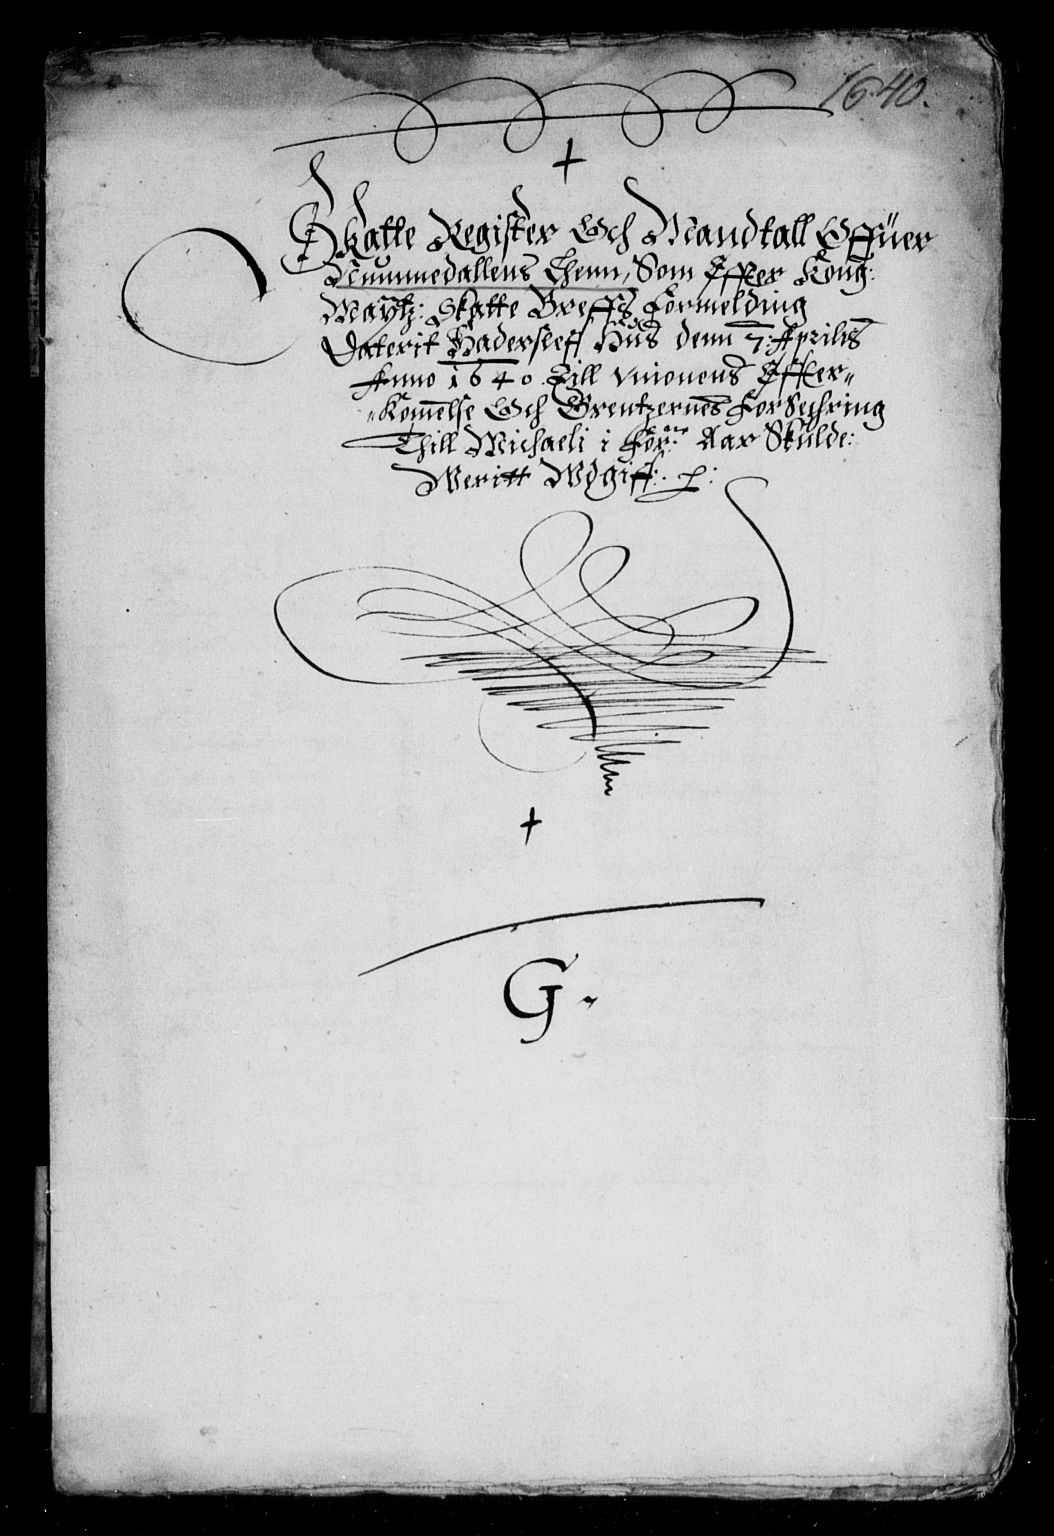 1640.
Skatte Register Och Mandtall Offuer
Nummedallens Lhenn, Som Effter Kong:
Maytz: Skatte Breffs Formelding
Daterit Hadersleff Huus denn 7: Aprilis
Anno 1640. Till Vnionens Effter-
-Komelse Och Grentzernes Forsechring
Thill Michaeli i For:ne Aar Skulde:
Weritt Wdgiff:
G.